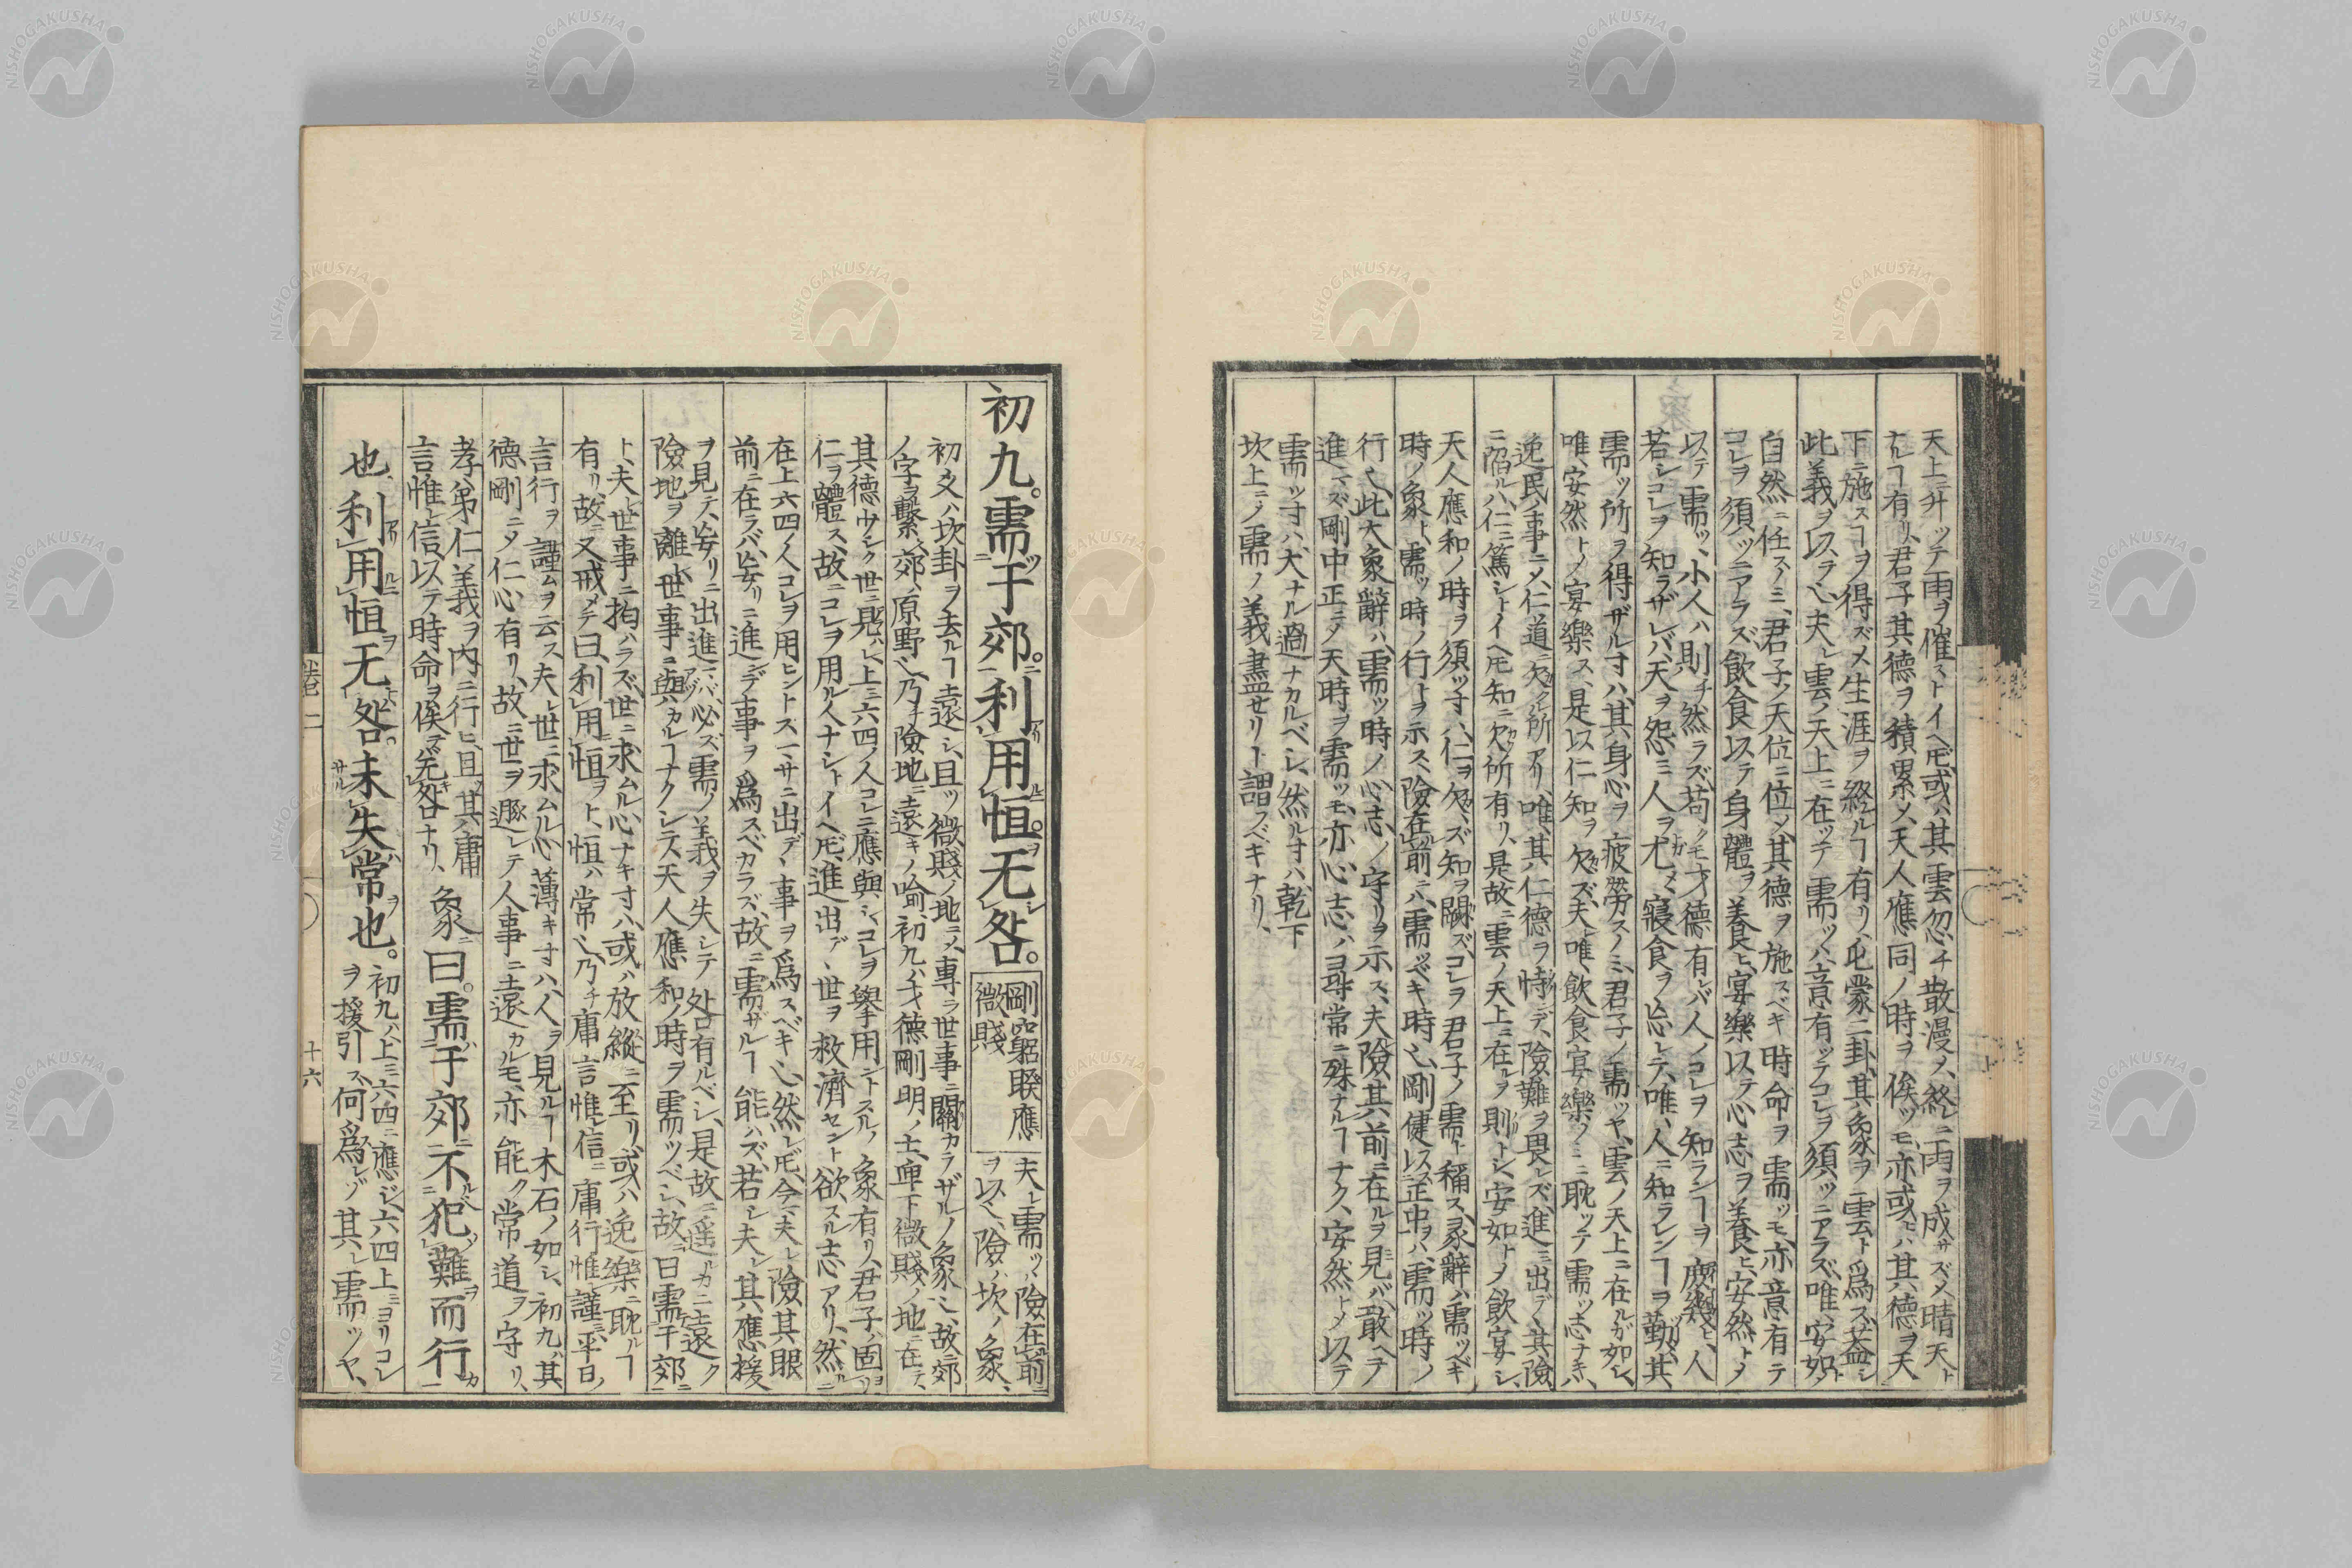 天上ニ升ツテ雨ヲ催ストイヘ𪜈或ハ其雲忽チ散漫メ終ニ雨ヲ成サズメ晴天ト
ナルヿ有リ君子其德ヲ積累メ天人應同ノ時ヲ俟ツモ亦或ハ其德ヲ天
下ニ施スヿヲ得ズメ生涯ヲ終ルヿ有リ屯蒙二卦其象ヲ雲ト爲ス蓋シ
此義ヲ以ラ也夫レ雲ノ天上ニ在ツテ需ツハ意有ツテコレヲ須ツニアラズ唯安如ト
自然ニ任スノミ君子ノ天位ニ位メ其德ヲ施スベキ時命ヲ需ツモ亦意有テ
コレヲ須ツニアラズ飮食以テ身體ヲ養ヒ宴樂以テ心志ヲ養ヒ安然トメ
以テ需ツ小人ハ則チ然ラズ苟クモ才德有レバ人ノコレヲ知ランヿヲ庶幾ヒ人
若シコレヲ知ラザレバ天ヲ怨ミ人ヲ尤メ寢食ヲ忘レテ唯人ニ知ランヿヲ勤ム其
需ツ所ヲ得ザル寸ハ其身心ヲ疲勞スノミ君子ノ需ツヤ雲ノ天上ニ在ルガ如シ
唯安然トメ宴樂ス是以仁知ヲ欠ズ夫唯飮食宴樂ノミニ耽ツテ需ツ志ナキハ
逸民ノ事ニメ仁道ニ欠ル所アリ唯其仁德ヲ恃デ險難ヲ畏レズ進ミ出デ其險
ニ陷ルハ仁ニ篤シトイヘ𪜈知ニ欠所有リ是故ニ雲ノ天上ニ在ヲ則トシ安如トメ飮宴シ
天人應和ノ時ヲ須ツ寸ハ仁ヲ欠ズ知ヲ闕ズコレヲ君子ノ需ト稱ス彖辭ハ需ツベキ
時ノ象ト需ツ時ノ行トヲ示ス險在前ニハ需ツベキ時也剛健以正中ヲハ需ツ時ノ
行也此大象辭ハ需ツ時ノ心志ノ守リヲ示ス夫險其前ニ在ルヲ見バ敢ヘテ
進マズ剛中正ニメ天時ヲ需ツモ亦心志ハ尋常ニ殊ナルヿナク安然トメ以テ
需ツ寸ハ大ナル過ナカルベシ然ル寸ハ乾下
坎上ニノ需ノ義盡セリト謂スベキナリ
初九。需ツ于郊。利用恒。无咎。
剛窮暌應
微賤
夫レ需ツハ險在前ニ
ヲ以也險ハ坎ノ象
初爻ハ坎卦ヲ去ルヿ遠シ且ツ微賤ノ地ニメ專ラ世事ニ關カラザルノ象也故郊
ノ字ヲ繫ク郊ハ原野也乃チ險地ニ遠キノ喩初九ハ才德剛明ノ士卑下微賤ノ地ニ在テ
其德サシク世ニ見ハレ上ニ六四ノ人コレニ應與シコレヲ擧用ントスルノ象有リ君子ノ固ヨリ
仁ヲ體ス故ニコレヲ用ル人ナシトイヘ𪜈進出デ世ヲ救濟セント欲スル志アリ然ルニ
在上六四ノ人コレヲ用ヒントス一サニ出デ事ヲ爲スベキ也然レ𪜈今夫レ險其眼
前ニ在ラバ妄リニ進ンデ事ヲ爲スベカラズ故ニ需ザルヿ能ハズ若シ夫レ其應援
ヲ見テ妄リニ出進マバ必ズ需ノ義ヲ失シテ咎有ルベシ是故ニ遥カニ遠ク
險地ヲ離レ世事ニ與カルヿナクシテ天人應和ノ時ヲ需ツベシ故ニ曰需于郊ニ
ト夫レ世事ニ拘ハラズ世ニ求ムル心ナキ寸ハ或ハ放縱ニ至リ或ハ逸樂ニ耽ルヿ
有リ故ニ又戒メテ曰利用恒ヲト恒ハ常也乃チ庸言惟レ信ニ庸行惟レ謹ミ平日ノ
言行ヲ謹ムヲ云ス夫レ世ニ求ムル心薄キ寸ハ人ヲ見ルヿ木石ノ如シ初九ハ其
德剛ニメ仁心有リ故ニ世ヲ遯レテ人事ニ遠カルモ亦能ク常道ヲ守リ
孝弟仁義ヲ內ニ行ヒ且ツ其庸
言惟レ信以テ時命ヲ俟ヲ无咎ナリ
象ニ曰。需于郊ニ不犯難ヲ而行カ
也。利用恒ヲ无咎。未失常ヲ也。
初九ハ上ニ六四ニ應ジ六四上ニヨリコレ
ヲ援引ス何爲レゾ其レ需ツヤ
卷二
十六
NISHOGAKUSHA